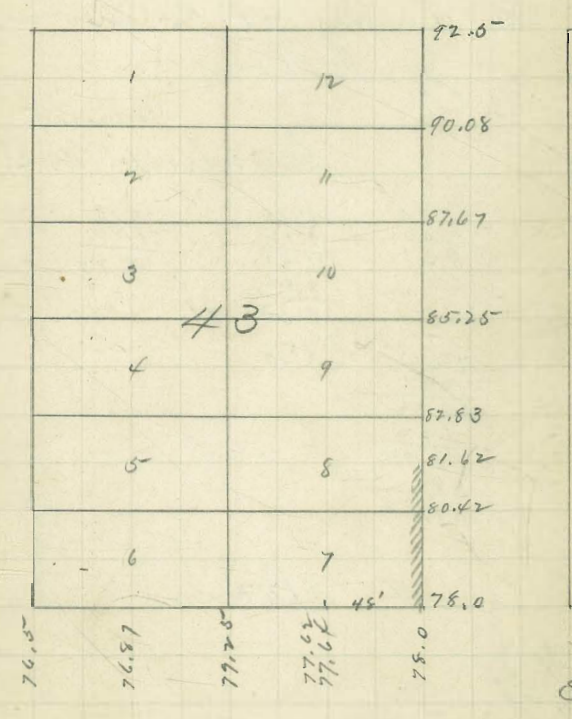 92.5
1 12
90.08
2 11
87.67
3 10
43
85.25
4 9
82.83
5 8
81.62
80.42
6 7
48'
78.0
76.5
76.87
79.25
77.62
78.0